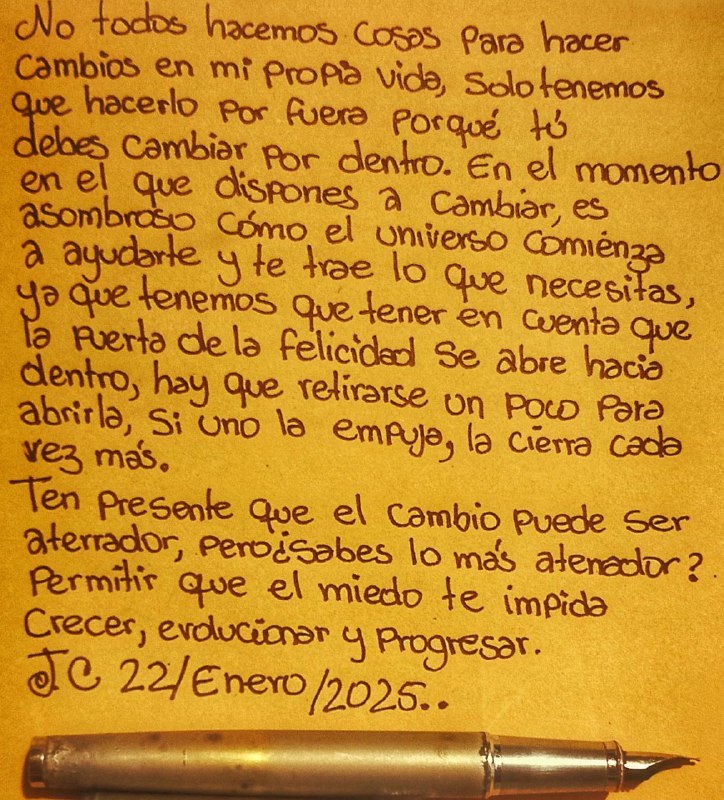 No todos hacemos cosas para hacer
cambios en mi propia vida, solo tenemos
que hacerlo por fuera porqué tú
debes cambiar por dentro. En el momento
en el que dispones a cambiar, es
asombroso cómo el universo comienza
a ayudarte y te trae lo que necesitas,
ya que tenemos que tener en cuenta que
la puerta de la felicidad se abre hacia
dentro, hay que retirarse un poco para
abrirla, si uno la empuja, la cierra cada
vez más.
Ten presente que el cambio puede ser
aterrador, pero ¿sabes lo más aterrador?
Permitir que el miedo te impida
crecer, evolucionar y progresar.
JC 22/Enero/2025..